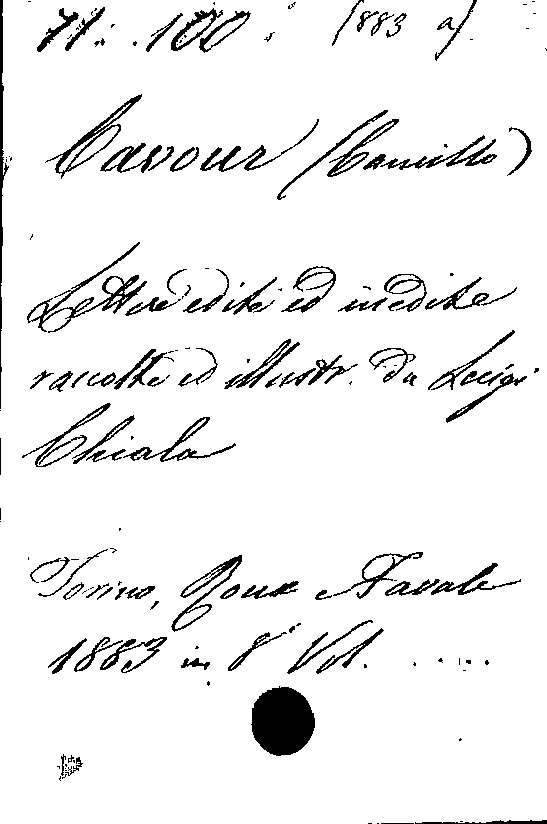 71. .100. (883 a)
Cavour (Camillo)
Lettere edite ed inedite
raccolte ed illustr. da Luigi
Chiala
Torino, Roux e Favale
1883 in 8° Vol. .....